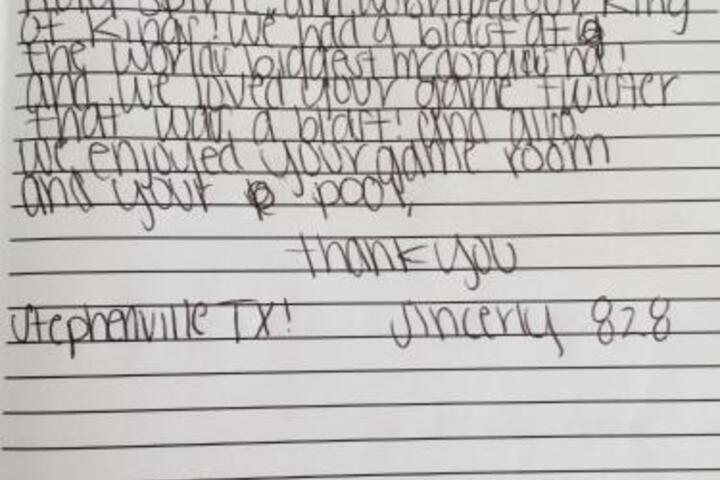 Holy Spirit, and worshiped our King
of Kings! We had a blast at
the worlds biggest mcdonalds ha!
and we loved your game twister
that was a blast! and also
we enjoyed your game room
and your pool,
thank you
Stephenville TX! Sincerly 828